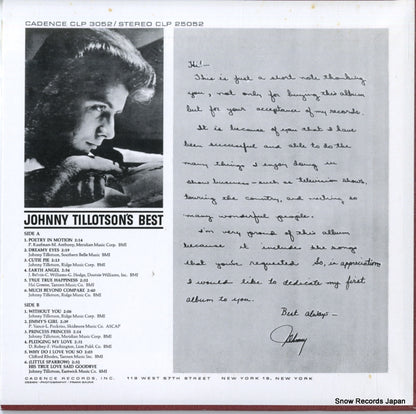 CADENCE CLP 3052/STEREO CLP 25052
JOHNNY TILLOTSON'S BEST
SIDE A
1. POETRY IN MOTION 2:24
P. Kaufman-M. Anthony, Meridian Music Corp. BMI
2. DREAMY EYES 2:19
Johnny Tillotson, Southern Belle Music BMI
3. CUTIE PIE 2:23
Johnny Tillotson, Ridge Music Corp. BMI
4. EARTH ANGEL 2:54
J. Belvin-C. Williams-G. Hodge, Dootsie Williams, Inc. BMI
5. TRUE TRUE HAPPINESS 2:22
Hal Greene, Tannen Music Co. BMI
6. MUCH BEYOND COMPARE 2:40
Johnny Tillotson, Ridge Music Corp. BMI
SIDE B
1. WITHOUT YOU 2:08
Johnny Tillotson, Ridge Music Corp. BMI
2. JIMMY'S GIRL 2:39
P. Vance-L. Pockriss, Skidmore Music Co. ASCAP
3. PRINCESS PRINCESS 2:14
Johnny Tillotson, Meridian Music Corp. BMI
4. PLEDGING MY LOVE 2:31
D. Robey-F. Washington, Lion Publ. Co. BMI
5. WHY DO I LOVE YOU SO 2:23
Clifford Rhodes, Tannen Music Inc. BMI
6. (LITTLE SPARROW)
HIS TRUE LOVE SAID GOODBYE
Johnny Tillotson, Eastwick Music Co. BMI
Hi!—
This is just a short note thanking
you, not only for buying this album
but for your acceptance of my records.
It is because of you that I have
been successful and able to do the
many things I enjoy doing in
show business — such as television shows,
touring the country, and meeting so
many wonderful people.
I'm very proud of this album
because it includes the songs
that you've requested. So, in appreciation
I would like to dedicate my first
album to you.
But always —
Johnny
CADENCE RECORDS, INC. 119 WEST 57TH STREET NEW YORK 19, NEW YORK
Snow Records Japan